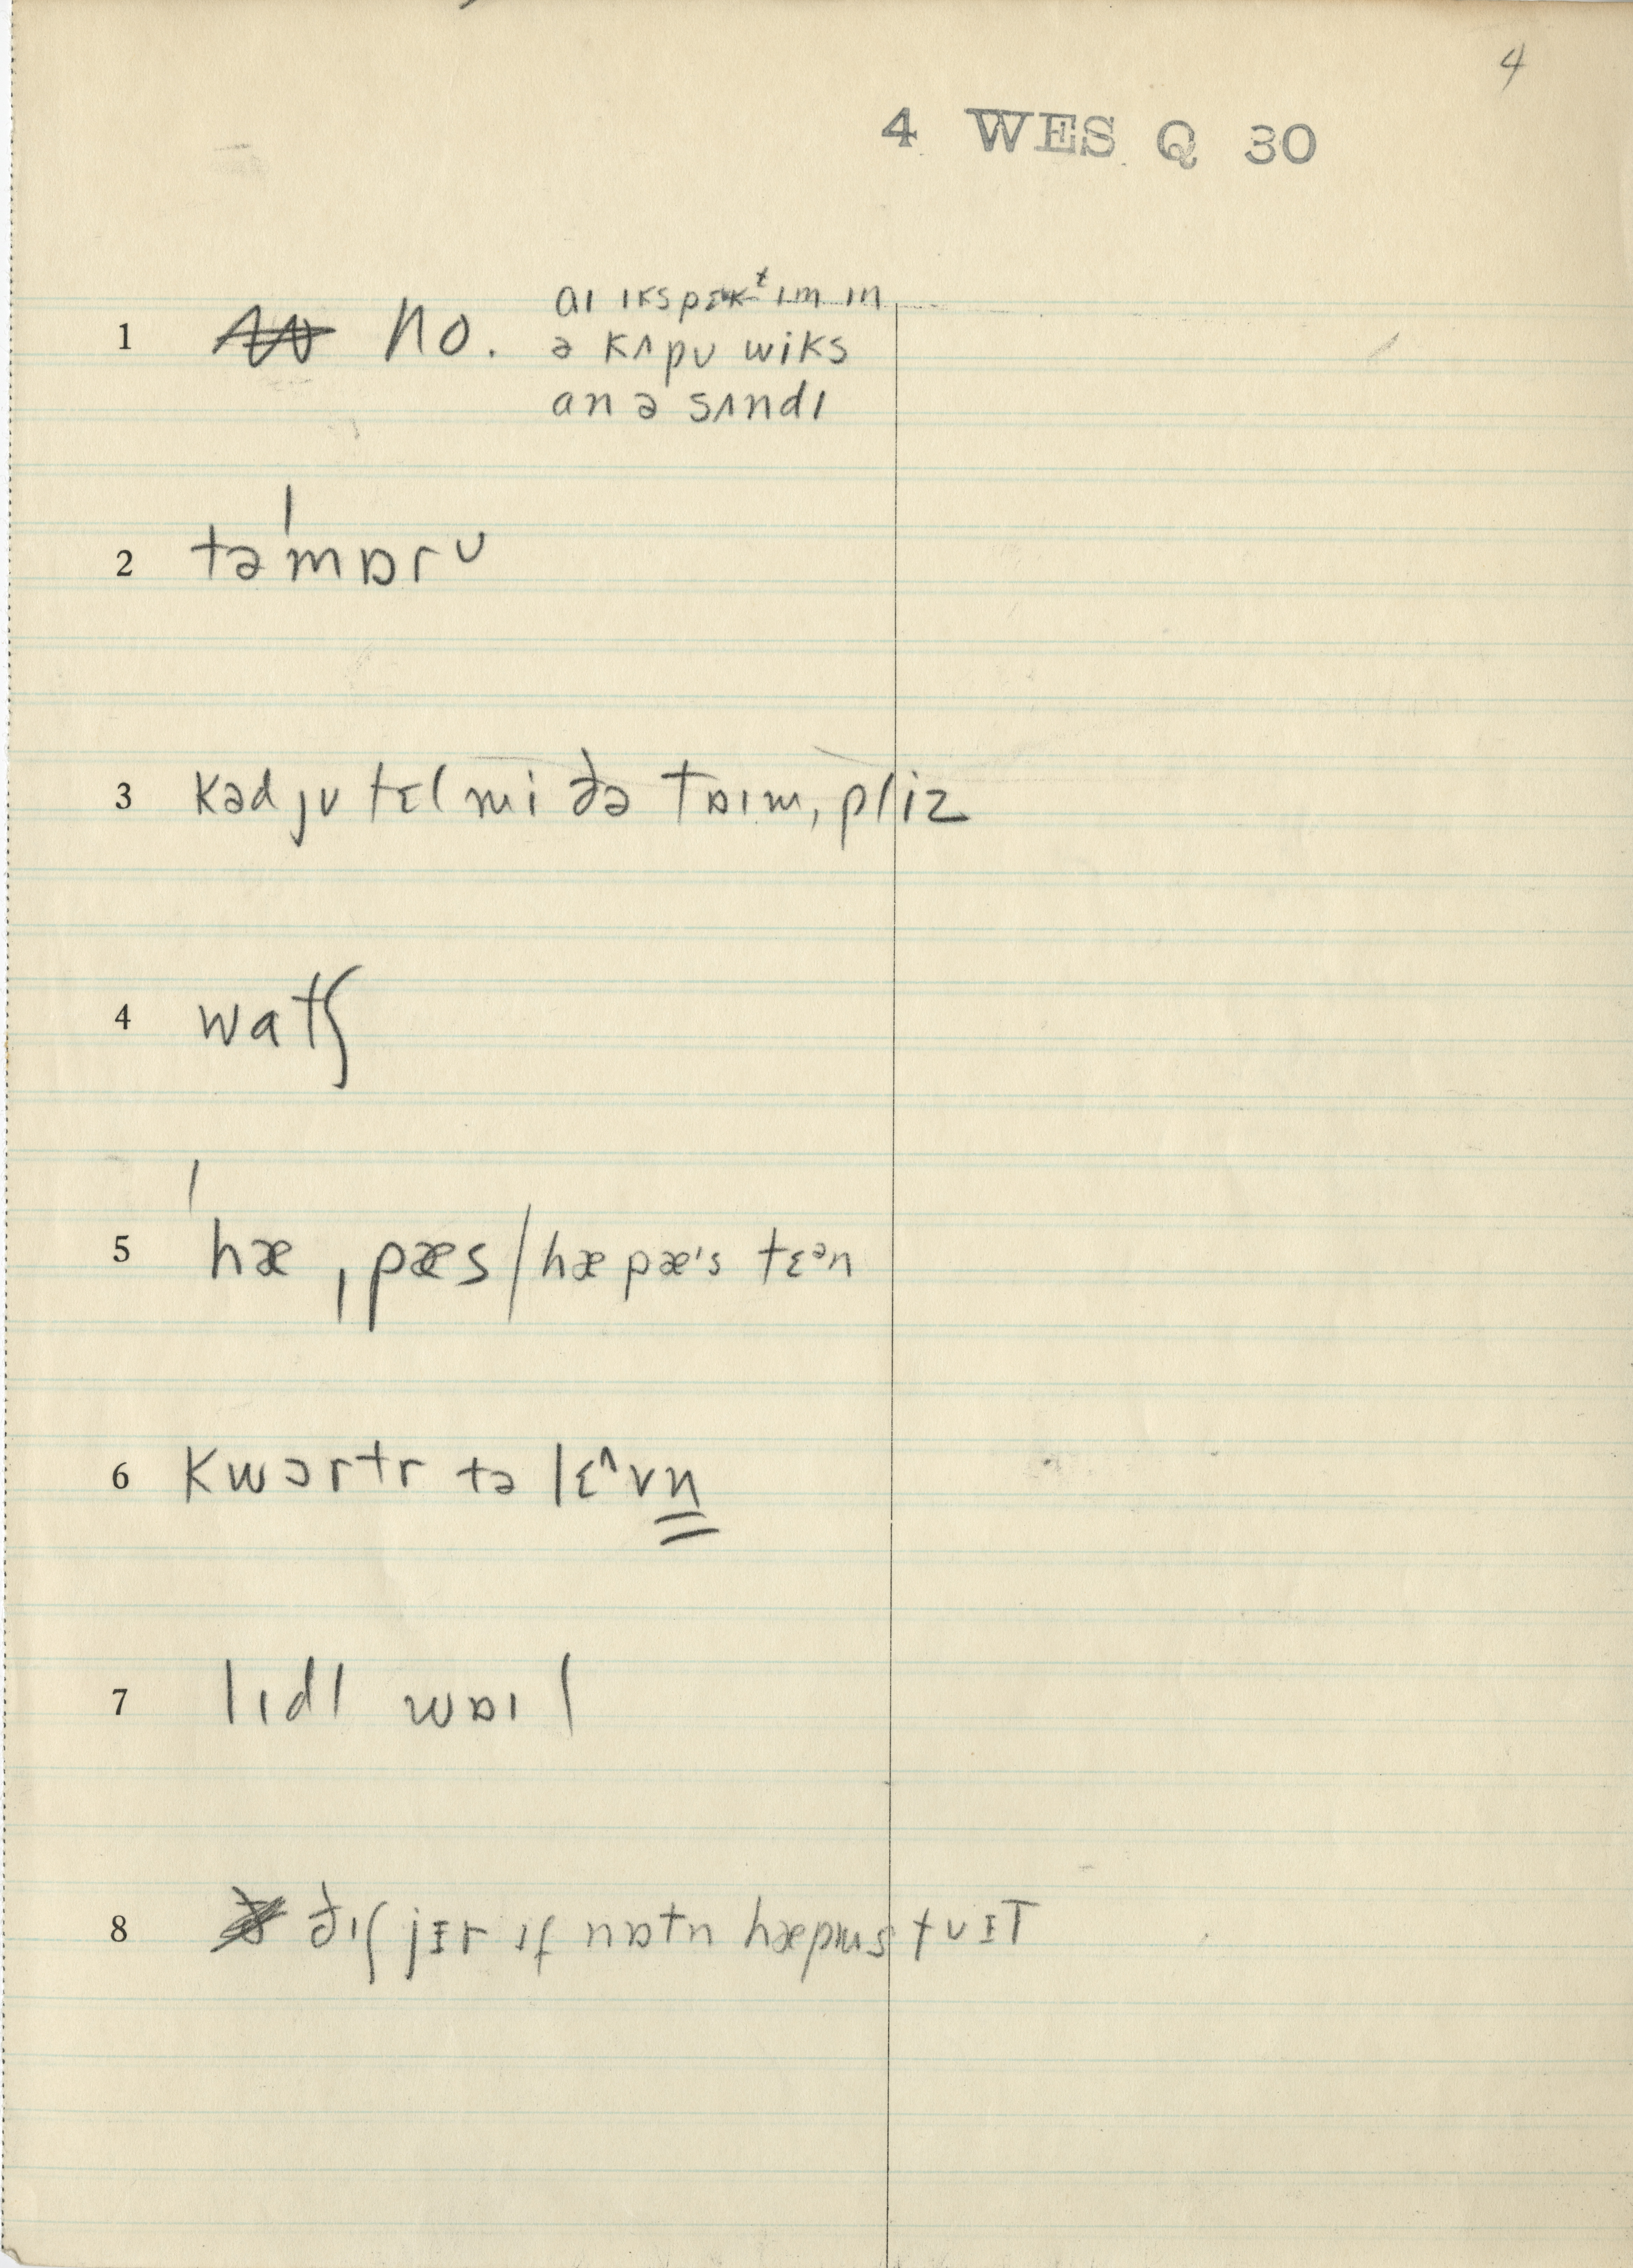 4
4 WES Q 30
1 no. aɪ ɪkspɛkᵗ ɪm ɪn
ə kʌpʊ wiks
an ə sʌndɪ
2 təˈmɒrᴜ
3 kəd jʊ tɛl mi ðə tɒɪm, pliz
4 watʃ
5 ˈhæ ˌpæs / hæ pæ's tɛᵊn
6 kwɔrtr tə lɛ^vn̳
7 lɪdl wɒɪl
8 ðɪʃ jɪr ɪf nɒtn hæpɪns tʊ ɪt